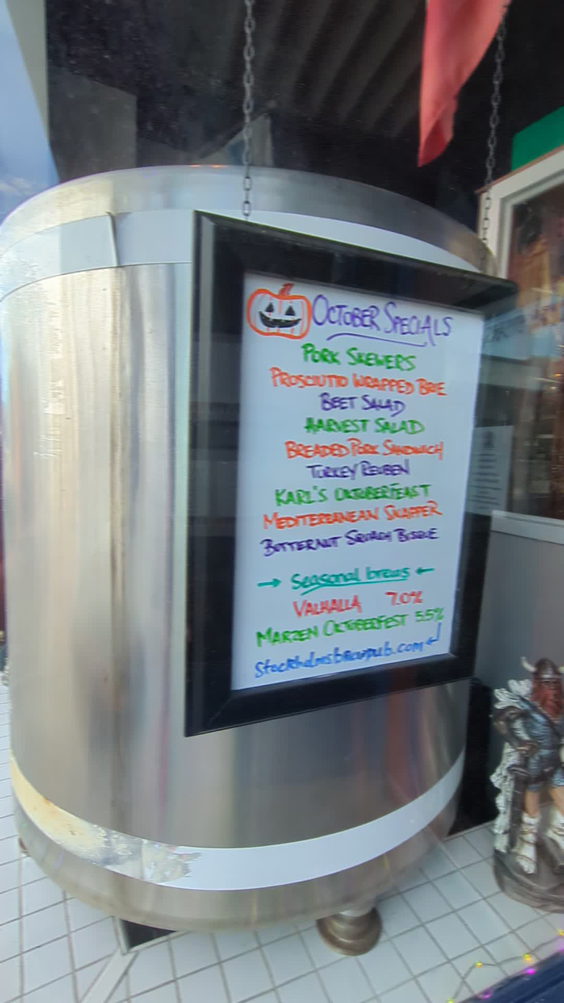 OCTOBER SPECIALS
PORK SKEWERS
PROSCIUTTO WRAPPED BRIE
BEET SALAD
HARVEST SALAD
BREADED PORK SANDWICH
TURKEY REUBEN
KARL'S OKTOBERFEAST
MEDITERRANEAN SNAPPER
BUTTERNUT SQUASH BISQUE
→ Seasonal brews ←
VALHALLA 7.0%
MARZEN OKTOBERFEST 5.5%
Stockholmsbrewpub.com